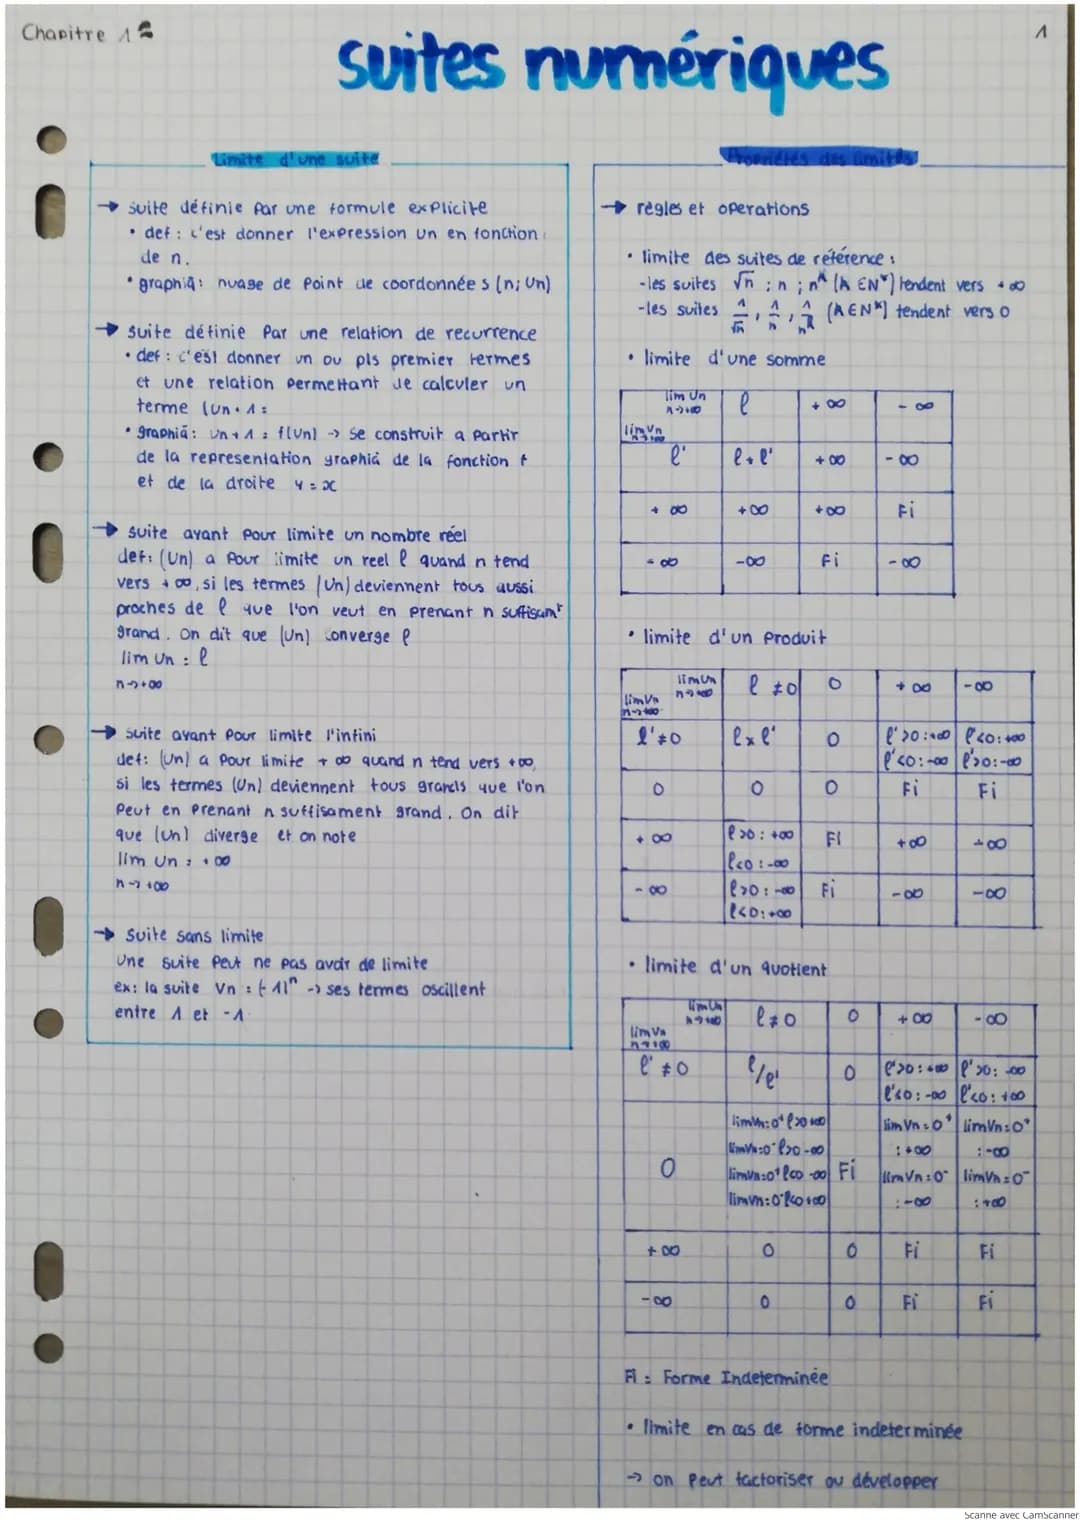 Chapitre 1
1
suites numériques
Limite d'une suite
→ suite définie par une formule explicite
• def : c'est donner l'expression Un en fonction
de n.
• graphiq : nuage de point de coordonnées (n; Un)
→ suite définie Par une relation de recurrence
• def : c'est donner un ou pls premier termes
et une relation permettant de calculer un
terme (Un+1 =
• graphiq : Un+1 = f(Un) -> se construit a partir
de la representation graphiq de la fonction f
et de la droite y = x
→ suite ayant pour limite un nombre réel
def: (Un) a Pour limite un reel l quand n tend
vers +∞, si les termes (Un) deviennent tous aussi
proches de l que l'on veut en prenant n suffisamt
grand. On dit que (Un) converge l
lim Un = l
n->+∞
→ suite ayant pour limite l'infini
def: (Un) a Pour limite +∞ quand n tend vers +∞,
si les termes (Un) deviennent tous grands que l'on
Peut en Prenant n suffisament grand. On dit
que (Un) diverge et on note
lim Un = +∞
n->+∞
→ suite sans limite
Une suite Peut ne pas avoir de limite
ex: la suite Vn = (-1)ⁿ -> ses termes oscillent
entre 1 et -1
Propriétés des limites
→ regles et operations
• limite des suites de référence :
-les suites √n ; n ; n^k (k ∈N*) tendent vers +∞
-les suites 1/√n , 1/n , 1/n^k (k∈N*) tendent vers 0
• limite d'une somme
lim Un n->+∞ l +∞ -∞
lim Vn n->+∞
l' l+l' +∞ -∞
+∞ +∞ +∞ Fi
-∞ -∞ Fi -∞
• limite d'un Produit
lim Un n->+∞ l ≠0 0 +∞ -∞
lim Vn n->+∞
l'≠0 l×l' 0 l'>0:+∞ l'<0:+∞
l'<0:-∞ l'>0:-∞
0 0 0 Fi Fi
+∞ l>0: +∞ FI +∞ -∞
l<0:-∞
-∞ l>0: -∞ Fi -∞ -∞
l<0:+∞
• limite d'un quotient
lim Un n->+∞ l≠0 0 +∞ -∞
lim Vn n->+∞
l' ≠0 l/l' 0 l'>0: +∞ l'>0: -∞
l'<0: -∞ l'<0: +∞
lim Vn=0⁺ l>0 +∞ lim Vn=0⁺ lim Vn=0⁺
lim Vn=0⁻ l>0 -∞ :+∞ :-∞
0 lim Vn=0⁺ l<0 -∞ Fi lim Vn=0⁻ lim Vn=0⁻
lim Vn=0⁻ l<0 +∞ :-∞ :+∞
+∞ 0 0 Fi Fi
-∞ 0 0 Fi Fi
Fi : Forme Indeterminée
• limite en cas de forme indeterminée
-> on peut factoriser ou développer
Scanné avec CamScanner